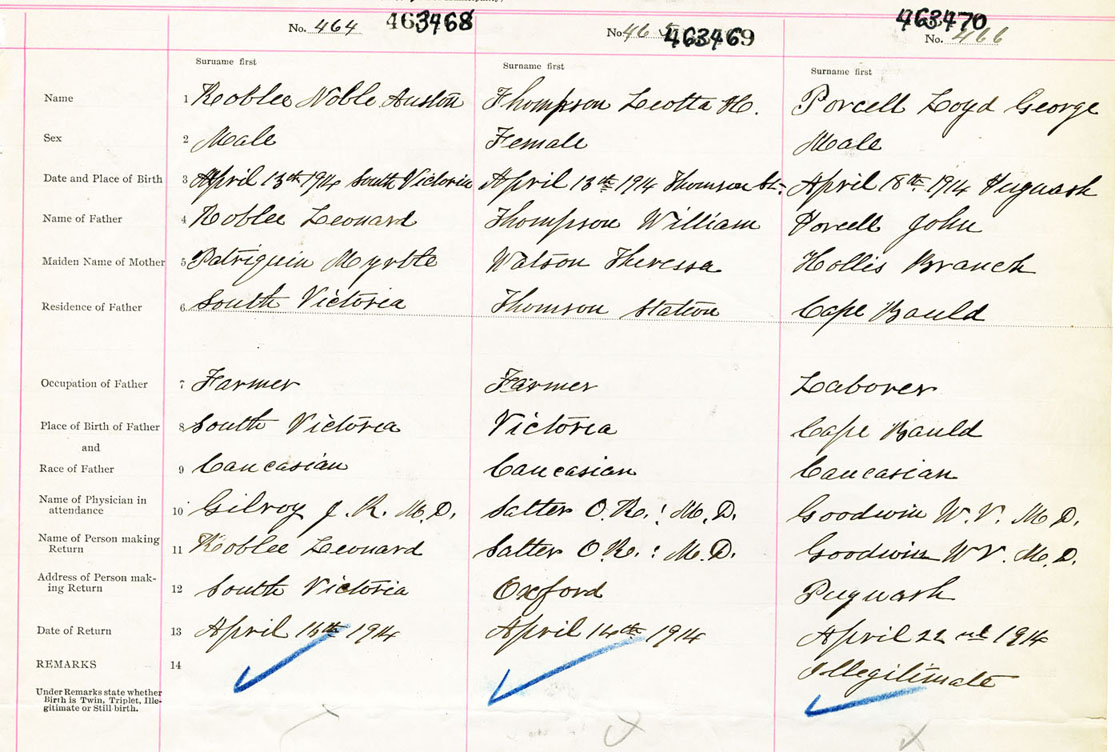 No. 464 463468 No. 465 463469 463470 No. 466
Surname first Surname first Surname first
Name 1 Roblee Noble Auston Thompson Leotta H. Porcell Loyd George
Sex 2 Male Female Male
Date and Place of Birth 3 April 13th 1914 South Victoria April 13th 1914 Thomson St. April 18th 1914 Pugwash
Name of Father 4 Roblee Leonard Thompson William Porcell John
Maiden Name of Mother 5 Patriquin Myrtle Watson Theressa Hollis Branch
Residence of Father 6 South Victoria Thomson Station Cape Bauld
Occupation of Father 7 Farmer Farmer Laborer
Place of Birth of Father 8 South Victoria Victoria Cape Bauld
and
Race of Father 9 Caucasian Caucasian Caucasian
Name of Physician in
attendance 10 Gilroy J. R. M.D. Salter O. R. : M.D. Goodwin W. V. M.D.
Name of Person making
Return 11 Roblee Leonard Salter O R. : M.D. Goodwin W V. M.D.
Address of Person mak-
ing Return 12 South Victoria Oxford Pugwash
Date of Return 13 April 16th 1914 April 14th 1914 April 22nd 1914
REMARKS 14 Illegitimate
Under Remarks state whether
Birth is Twin, Triplet, Ille-
gitimate or Still birth.